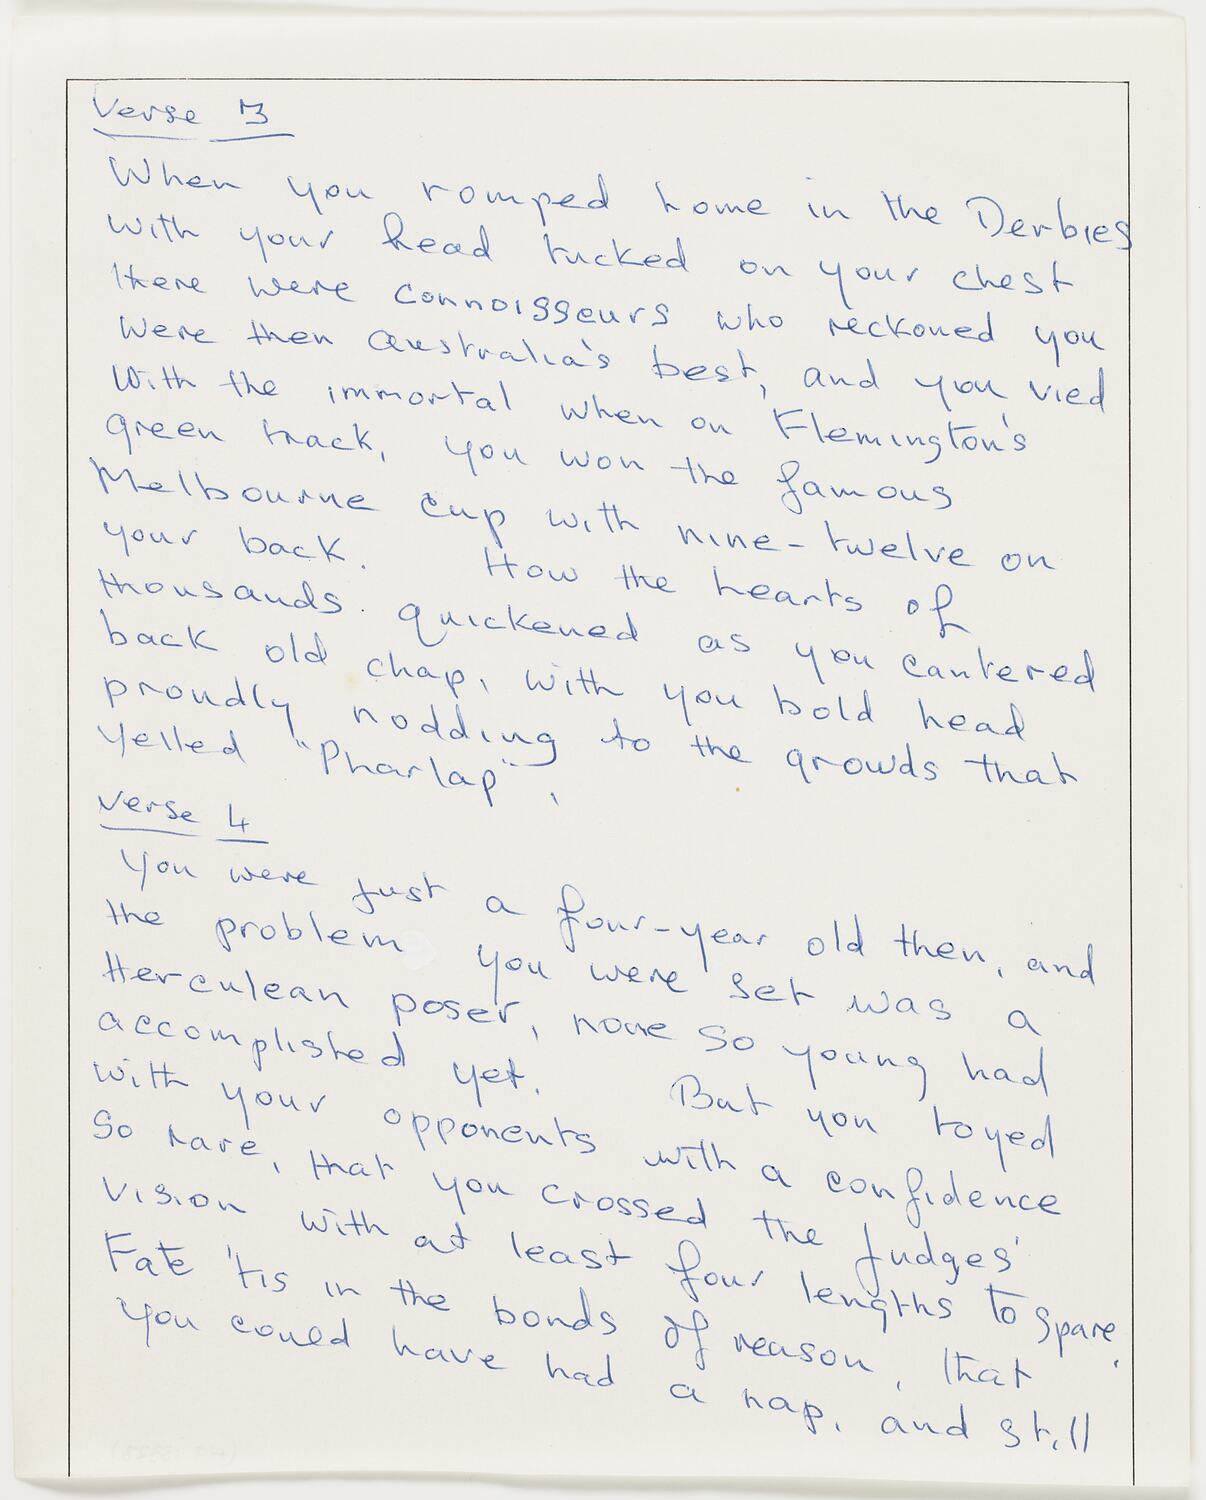 Verse 3
When you romped home in the Derbies
with your head tucked on your chest
there were connoisseurs who reckoned you
were then Australia's best, and you vied
With the immortal when on Flemington's
green track, you won the famous
Melbourne Cup with nine-twelve on
your back. How the hearts of
thousands quickened as you cantered
back old chap, with you bold head
proudly nodding to the growds that
yelled "Pharlap".
Verse 4
You were just a four-year old then, and
the problem you were set was a
Herculean poser, none so young had
accomplished yet. But you toyed
with your opponents with a confidence
So rare, that you crossed the judges'
vision with at least four lengths to spare.
Fate 'tis in the bonds of reason, that
you could have had a nap, and still